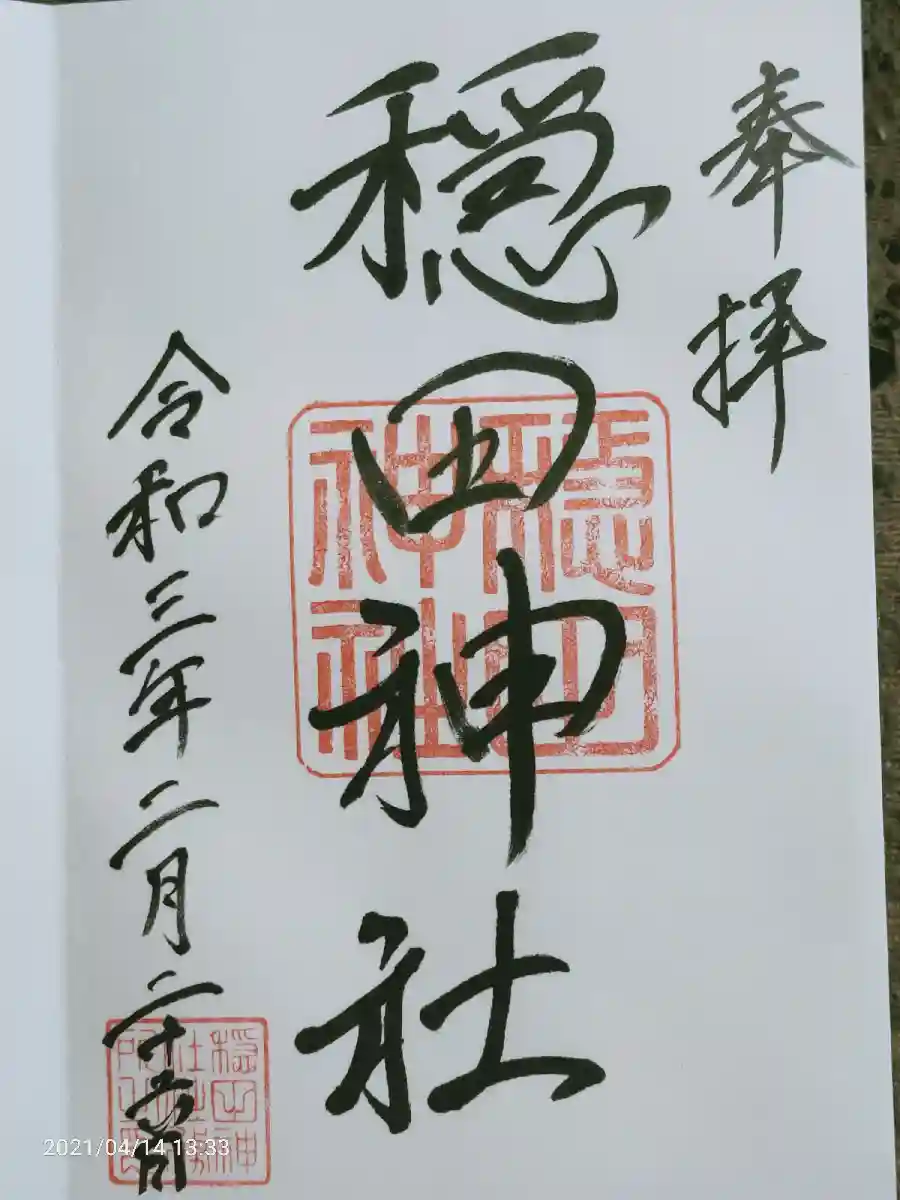 奉拝
穏田神社
穏田
神社
令和三年二月二十六日
穏田神
社社務
所之印
2021/04/14 13:33